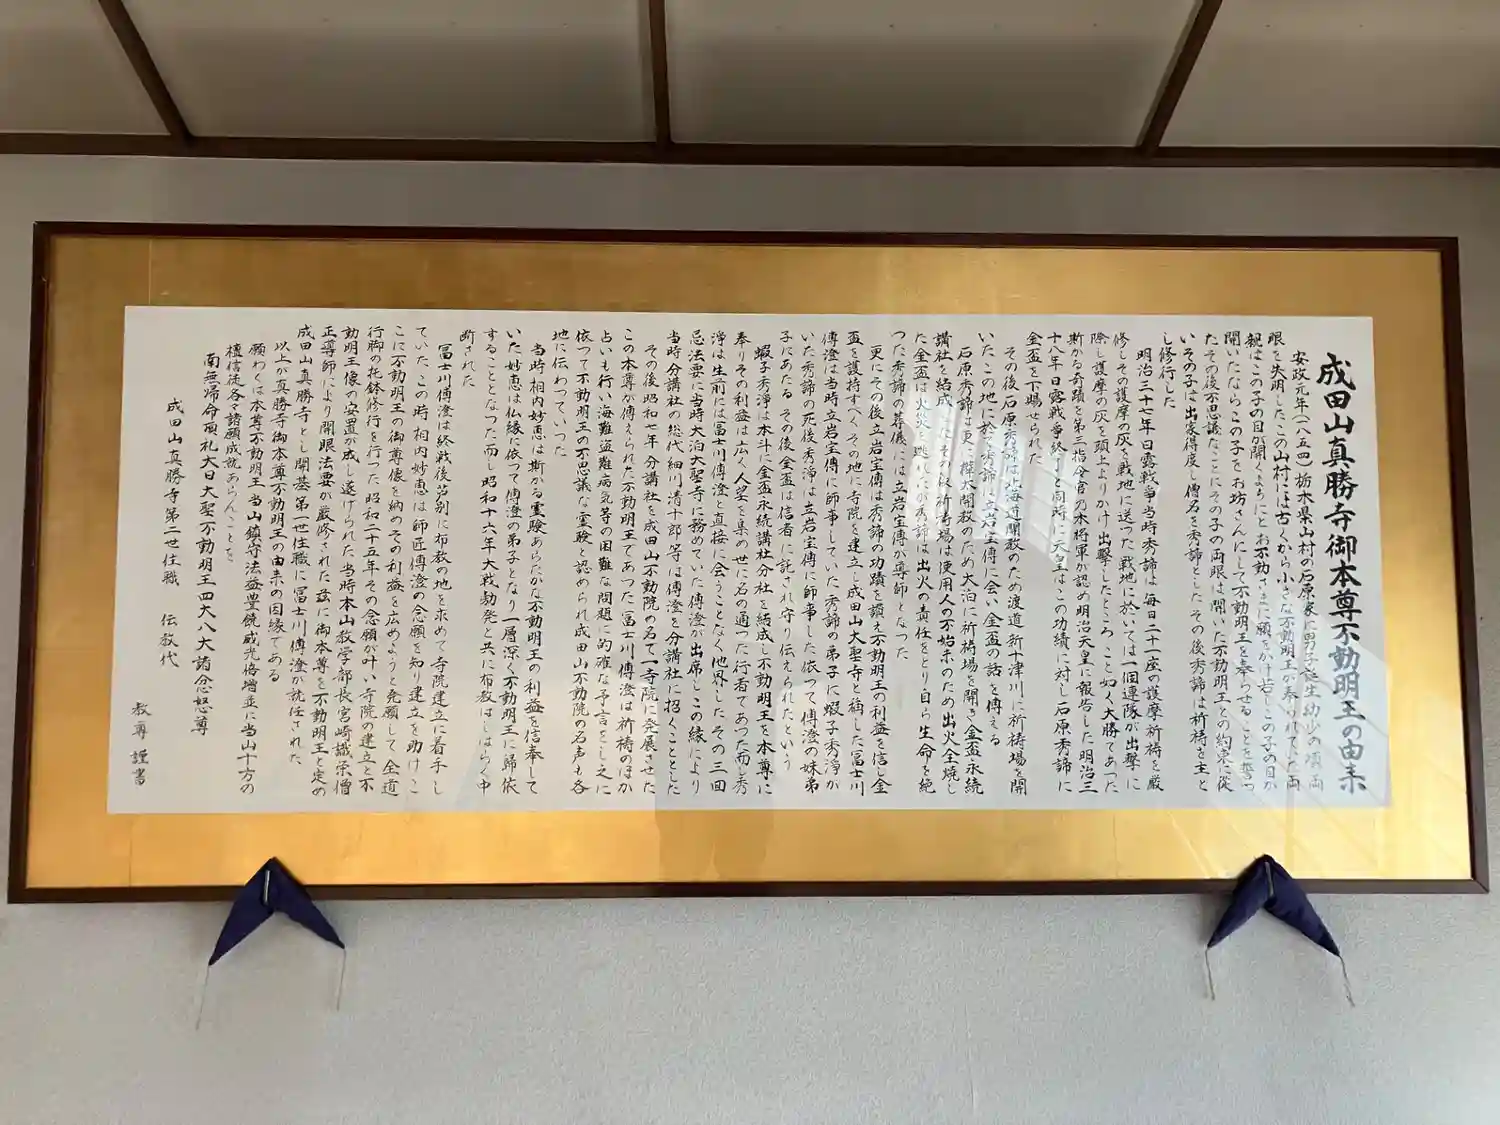 成田山真勝寺御本尊不動明王の由来
安政元年(一八五四)栃木県山村の石原家に男子誕生幼少の頃両
眼を失明したこの山村には古くから小さな不動明王が奉られてた両
親はこの子の目が開くようにとお不動さまに願をかけ若しこの子の目が
開いたならこの子をお坊さんにして不動明王を奉らせることを誓っ
たその後不思議なことにその子の両眼は開いた不動明王との約束に従
いその子は出家得度し僧名を秀諦としたその後秀諦は祈祷を主と
し修行した
明治三十七年日露戦争当時秀諦は毎日二十一座の護摩祈祷を厳
修しその護摩の灰を戦地に送った戦地に於いては一個連隊が出撃に
際し護摩の灰を頭上よりかけ出撃したところことごとく大勝であった
斯かる奇蹟を第三指令官乃木将軍が認め明治天皇に報告した明治三
十八年日露戦争終了と同時に天皇はこの功績に対し石原秀諦に
金盃を下賜せられた
その後石原秀諦は北海道開教のため渡道新十津川に祈祷場を開
いたこの地に於て秀諦は立岩宝傳に会い金盃の話を傳える
石原秀諦は更に樺太開教のため大泊に祈祷場を開き金盃永続
講社を結成したその後祈祷場は使用人の不始末のため出火全焼し
た金盃は火災を逃れたが秀諦は出火の責任をとり自ら生命を絶
つた秀諦の葬儀には立岩宝傳が導師となった
更にその後立岩宝傳は秀諦の功蹟を讃え不動明王の利益を信じ金
盃を護持すべくその地に寺院を建立し成田山大聖寺と称した冨士川
傳澄は当時立岩宝傳に師事していた秀諦の弟子に蝦子秀浄が
いた秀諦の死後秀浄は立岩宝傳に師事した依って傳澄の妹弟
子にあたるその後金盃は信者に託され守り伝えられたという
蝦子秀浄は本斗に金盃永続講社分社を結成し不動明王を本尊に
奉りその利益は広く人姿を集め世に名の通った行者であった而し秀
浄は生前には冨士川傳澄と直接に会うことなく他界したその三回
忌法要に当時大泊大聖寺に務めていた傳澄が出席しこの縁により
当時分講社の総代細川清十郎等は傳澄を分講社に招くこととした
その後昭和七年分講社を成田山不動院の名て一寺院に発展させた
この本尊が傳えられた不動明王であつた冨士川傳澄は祈祷のほか
占いも行い海難盗難病気等の困難な問題に的確な予言をし之に
依って不動明王の不思議な霊験と認められ成田山不動院の名声も各
地に伝わっていつた
当時相内妙恵は斯かる霊験あらたかな不動明王の利益を信奉して
いた妙恵は仏縁に依って傳澄の弟子となり一層深く不動明王に歸依
することとなった而し昭和十六年大戦勃発と共に布教はしばらく中
断された
冨士川傳澄は終戦後芦別に布教の地を求めて寺院建立に着手し
ていたこの時相内妙恵は師匠傳澄の念願を知り建立を助けこ
こに不動明王の御尊像を納めその利益を広めようと発願して全道
行脚の托鉢修行を行った昭和二十五年その念願が叶い寺院の建立と不
動明王像の安置が成し遂げられた当時本山教学部長宮崎識栄僧
正導師により開眼法要が厳修された茲に御本尊を不動明王と定め
成田山真勝寺とし開基第一世住職に冨士川傳澄が就任された
以上が真勝寺御本尊不動明王の由来の因縁である
願わくは本尊不動明王当山鎮守法益豊饒威光倍増並に当山十方の
檀信徒各々諸願成就あらんことを
南無帰命頂礼大日大聖不動明王四大八大諸念怒尊
成田山真勝寺第二世住職 伝教代
教尊 謹書